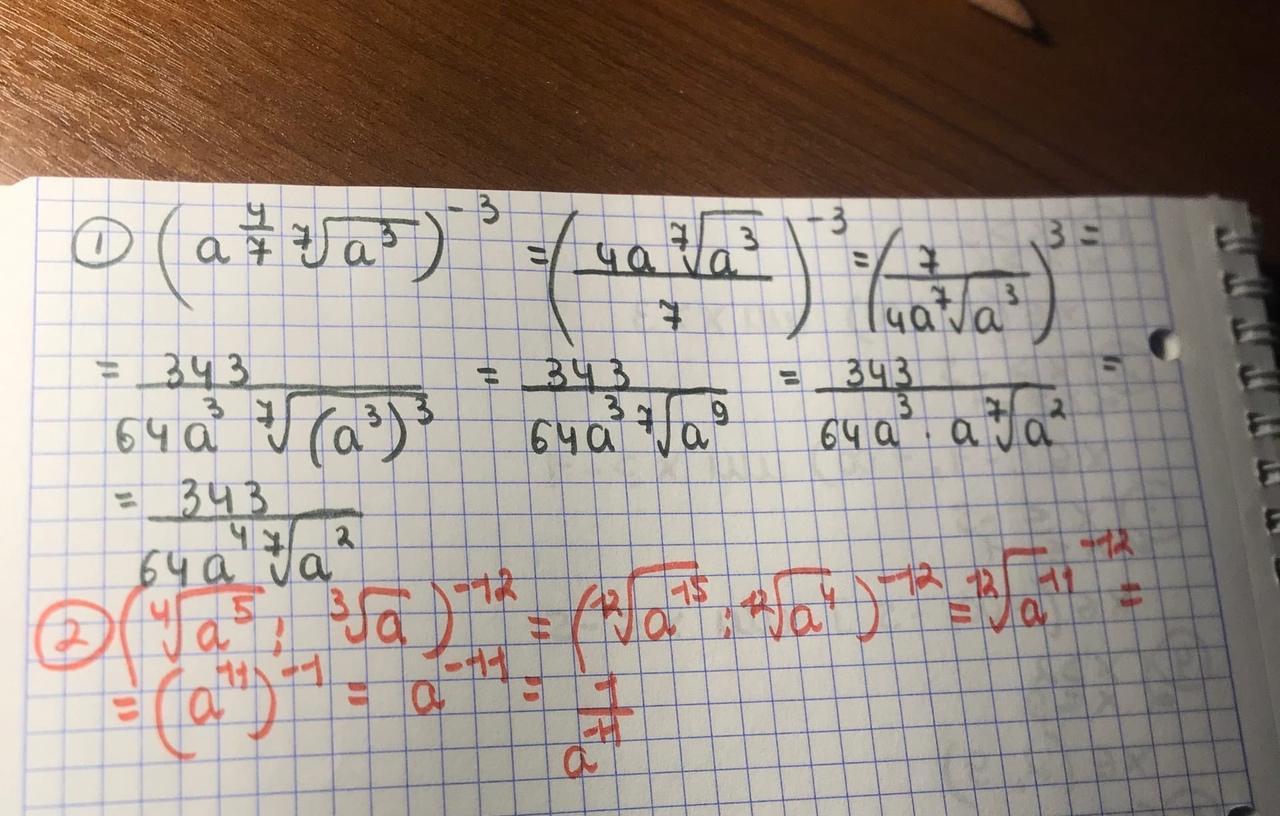 ① (a^{4/7} ⁷√(a³))^{-3} = (4a ⁷√(a³) / 7)^{-3} = (7 / 4a ⁷√(a³))^3 =
= 343 / 64a³ ⁷√((a³)³) = 343 / 64a³ ⁷√(a⁹) = 343 / 64a³ · a ⁷√(a²) =
= 343 / 64a⁴ ⁷√(a²)
② (⁴√(a⁵) : ³√a)^{-12} = (¹²√(a¹⁵) : ¹²√(a⁴))^{-12} = ¹²√(a¹¹)^{-12} =
= (a¹¹)^{-1} = a^{-11} = 1 / a¹¹